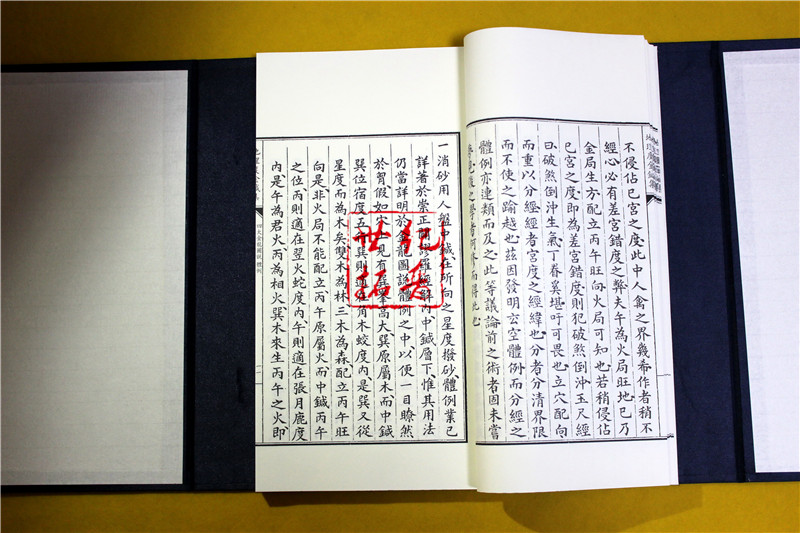 不侵佔巳宮之度此中人禽之界幾希作者稍不
經心必有差宮錯度之弊夫午為火局旺地巳乃
金局生方配立丙午旺向火局可知也若稍侵佔
巳宮之度即為差宮錯度則犯破煞倒沖玉尺經
曰破煞倒沖生氣丁眷奚堪吁可畏也立穴配向
而重以分經經者宮度之經緯也分者分清界限
而不使之踰越也茲因發明玄空體例而分經之
體例亦連類而及之此等議論前之術者固未嘗
夢見後之學者何修而得此也
一消砂用人盤中鍼在所向之星度撥砂體例業已
詳著於崇正闢謬羅經解內中鍼層下惟其用法
仍當詳明於金龍圖說體例之中以便一目瞭然
於胷假如穴上見有巽峯高大巽原屬木而中鍼
巽位宿度五巽則適在角木蛟度內是巽又從
星度而為木矣雙木為林三木為森配立丙午旺
向是非火局不能配立丙午原屬火而中鍼丙午
之位丙則適在翌火蛇度內午則適在張月鹿度
內是午為君火丙為相火巽木來生丙午之火即
世纪
拓